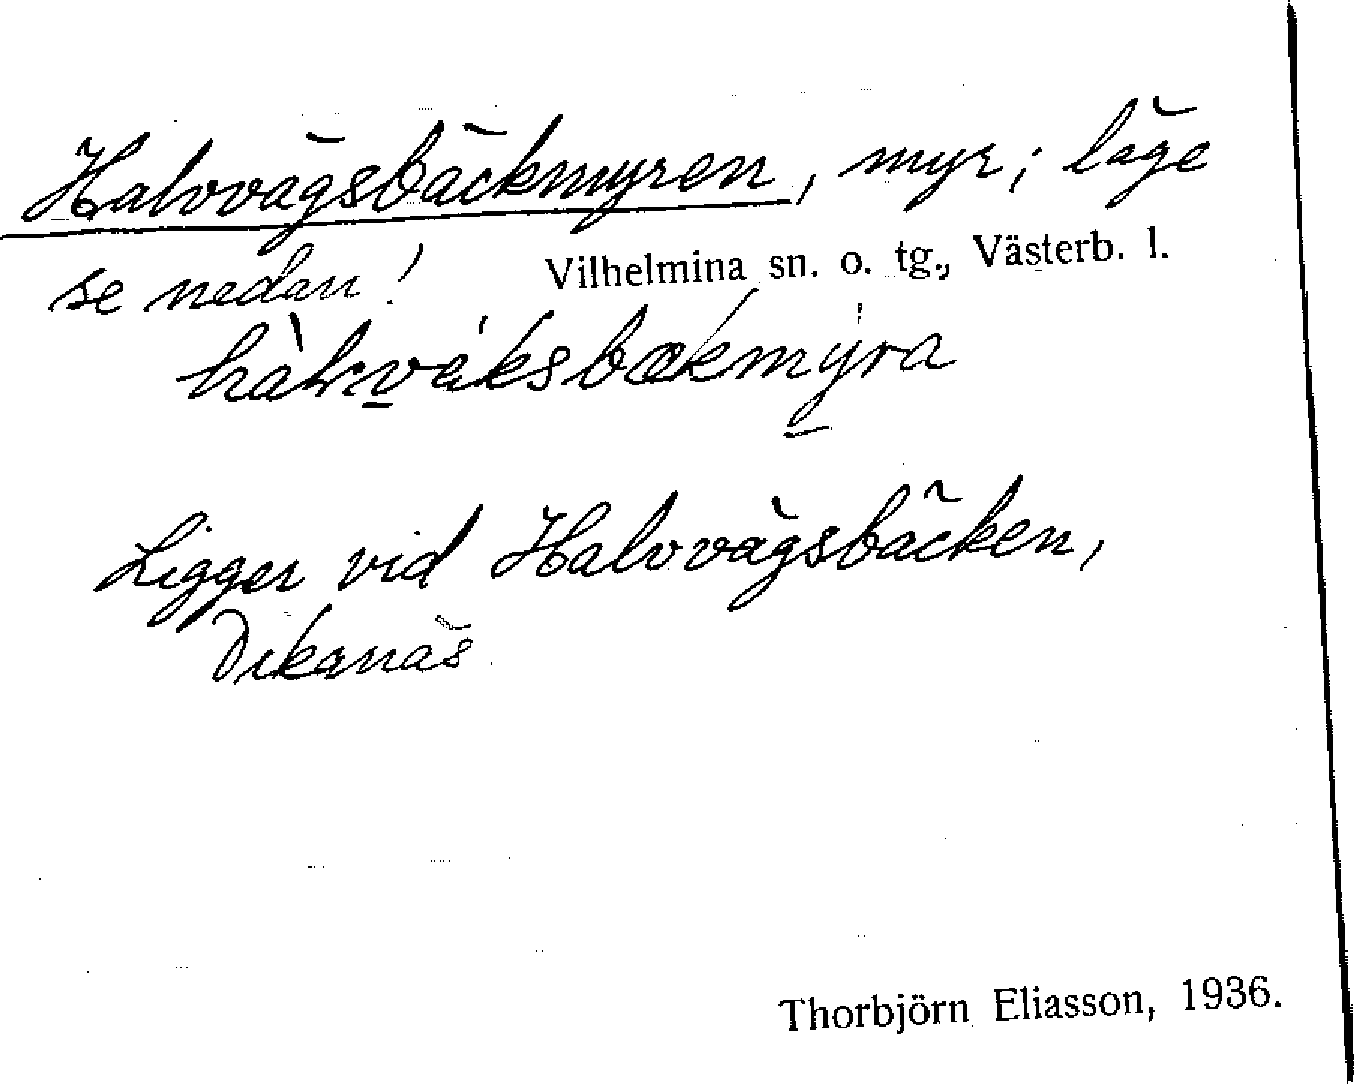 Halvvägsbäckmyren, myr; läge
se nedan! Vilhelmina sn. o. tg., Västerb. l.
Ligger vid Halvvägsbäcken,
Dikanäs
Thorbjörn Eliasson, 1936.